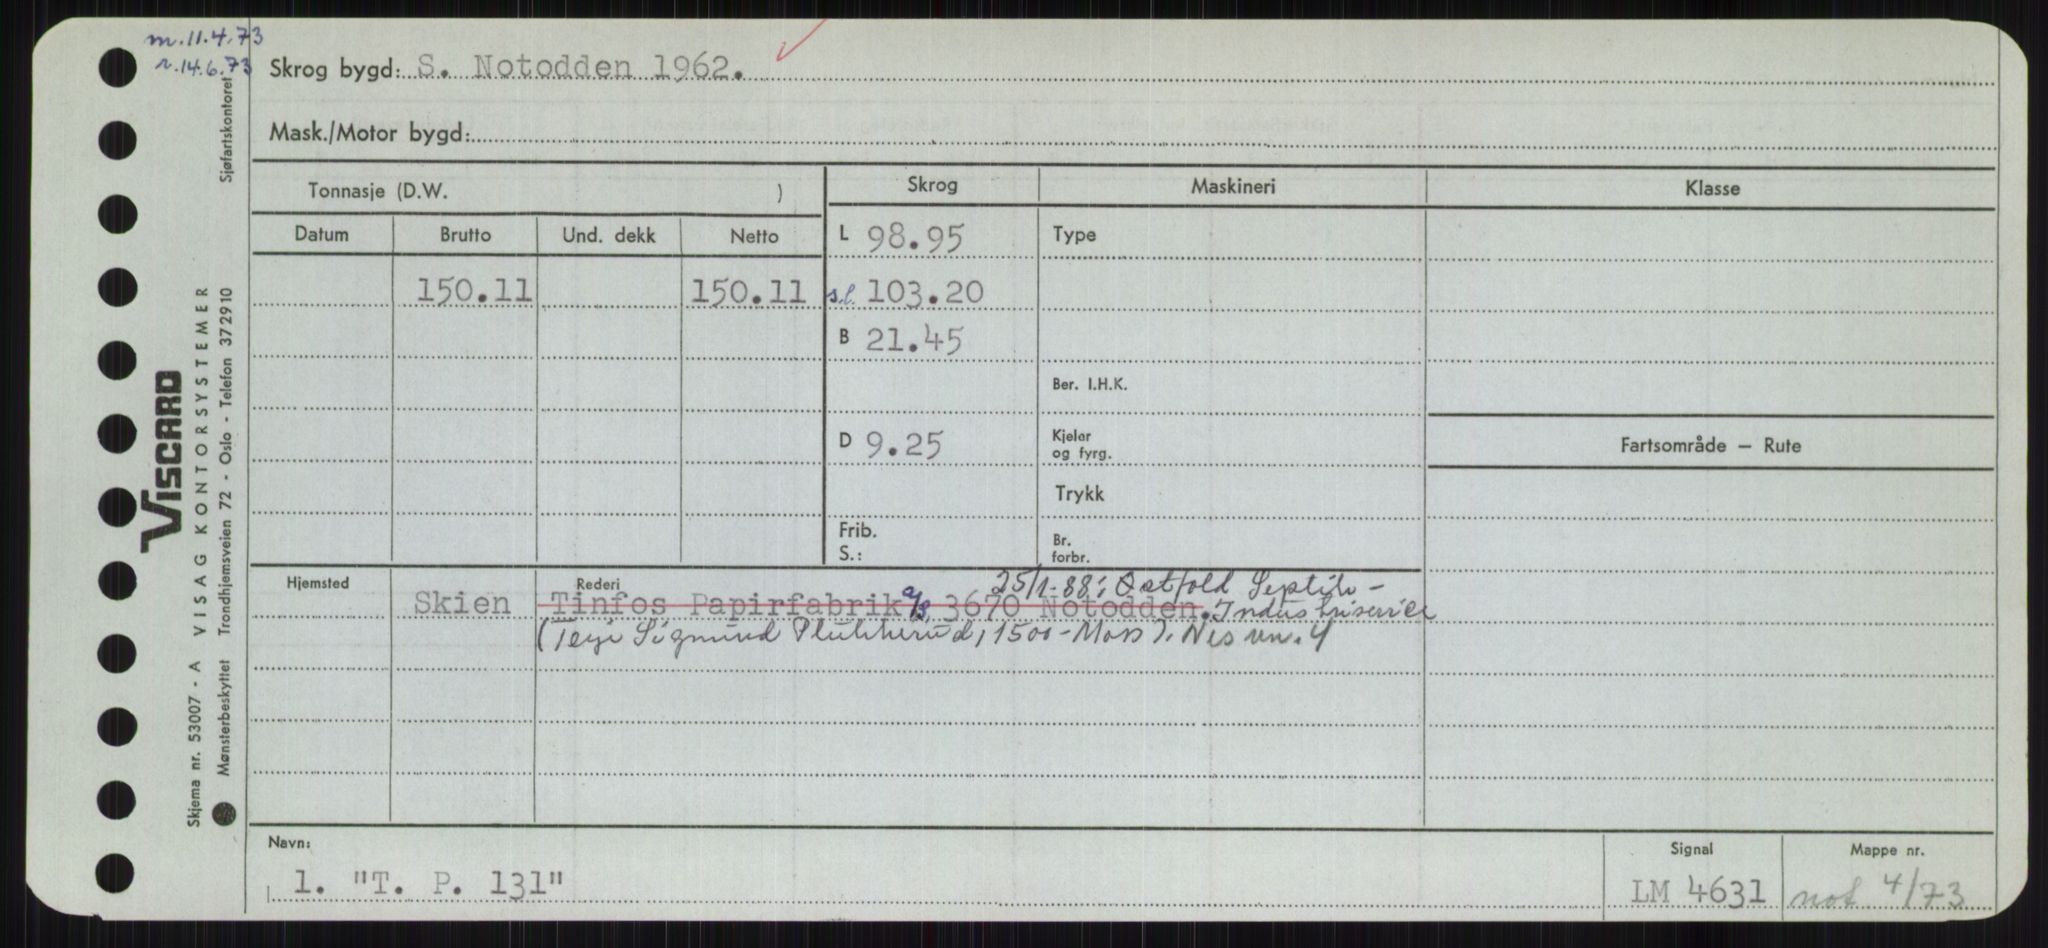 m.11.4.73
r.14.6.73
Skrog bygd: S. Notodden 1962.
Mask./Motor bygd:
Tonnasje (D.W. )
Skrog
Maskineri
Klasse
Datum
Brutto
Und. dekk
Netto
L 98.95
Type
150.11
150.11
s.l. 103.20
B 21.45
Ber. I.H.K.
D 9.25
Kjeler
og fyrg.
Fartsområde — Rute
Trykk
Frib.
S.:
Br.
forbr.
Hjemsted
Rederi
25/1-88: Østfold Septik-
Skien
Tinfos Papirfabrik a/s, 3670 Notodden. Industriservice
(Terje Sigmund Plukkerud, 1500-Moss). Nes vn. 4
Navn:
1. "T. P. 131"
Signal
LM 4631
Mappe nr.
not 4/73
Skjema nr. 53007 - A VISAG KONTORSYSTEMER
VISCARD
Mønsterbeskyttet Trondhjemsveien 72 - Oslo - Telefon 37 29 10
Sjøfartskontoret